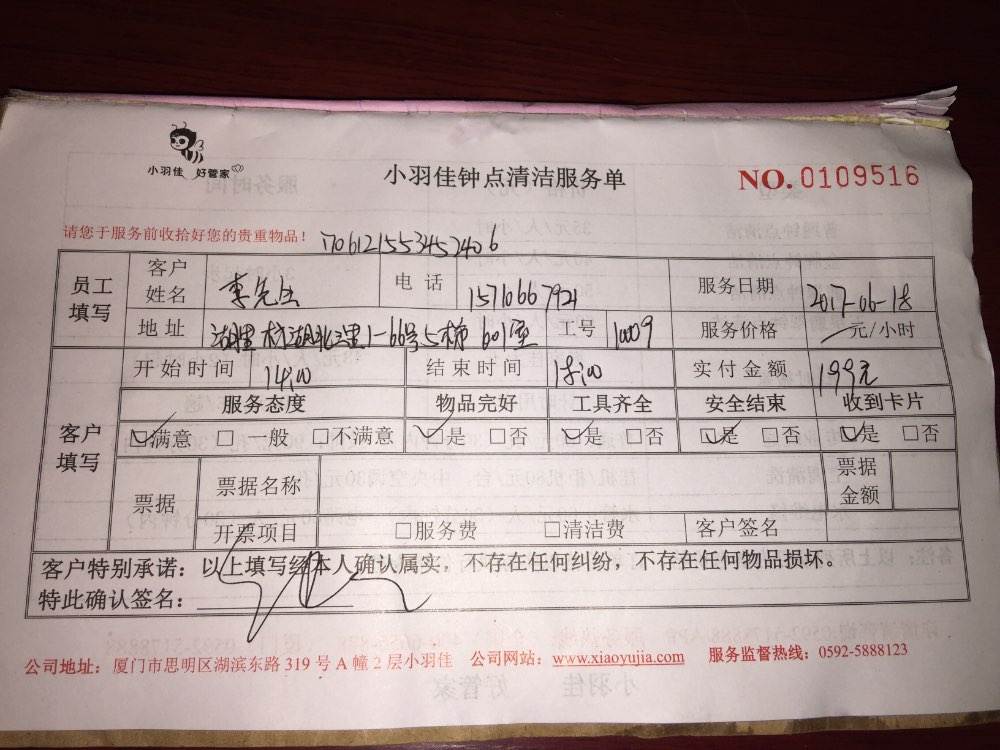 小羽佳 好管家
小羽佳钟点清洁服务单
NO. 0109516
请您于服务前收拾好您的贵重物品！
706121553452406
员工填写 客户姓名 李先生 电话 15710667921 服务日期 2017-06-18
地址 1-66号5梯 601室 工号 10009 服务价格 元/小时
开始时间 14:00 结束时间 18:00 实付金额 199元
客户填写 服务态度 物品完好 工具齐全 安全结束 收到卡片
☑满意 □一般 □不满意 ☑是 □否 ☑是 □否 ☑是 □否 ☑是 □否
票据 票据名称 票据金额
开票项目 □服务费 □清洁费 客户签名
客户特别承诺：以上填写经本人确认属实，不存在任何纠纷，不存在任何物品损坏。
特此确认签名：
公司地址：厦门市思明区湖滨东路 319 号 A 幢 2 层小羽佳 公司网站：www.xiaoyujia.com 服务监督热线：0592-5888123